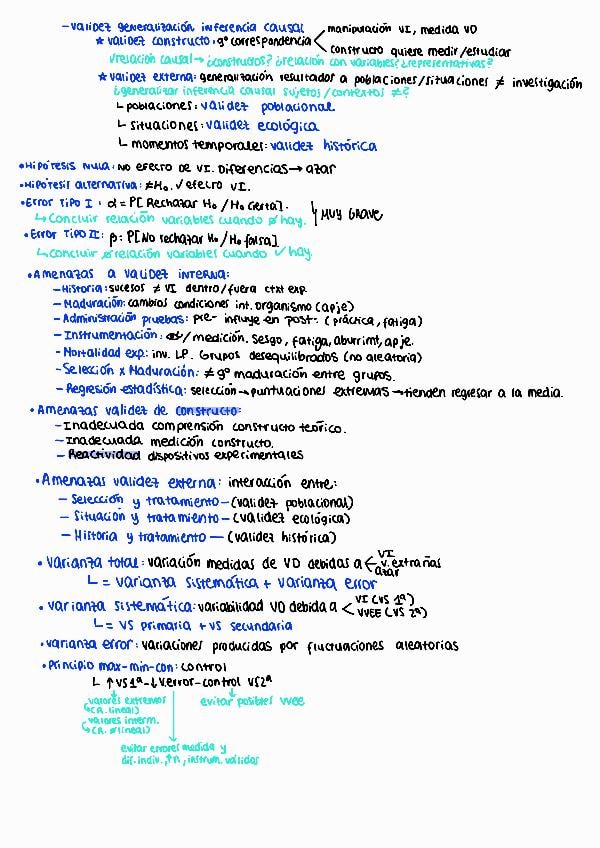 - validez generalización inferencia causal
★ validez constructo: gº correspondencia < manipulación VI, medida VD
constructo quiere medir/estudiar
√relación causal → ¿constructos? ¿relación con variables? ¿representativas?
★ validez externa: generalización resultados a poblaciones/situaciones ≠ investigación
¿generalizar inferencia causal sujetos/contextos ≠?
↳ poblaciones: validez poblacional
↳ situaciones: validez ecológica
↳ momentos temporales: validez histórica
• Hipótesis Nula: No efecto de VI. Diferencias → azar
• Hipótesis alternativa: ≠ H₀. ✓ efecto VI.
• Error Tipo I: α = P[Rechazar H₀ / H₀ cierta].
↳ Concluir relación variables cuando no hay.
MUY GRAVE
• Error Tipo II: β = P[No rechazar H₀ / H₀ falsa].
↳ Concluir no relación variables cuando ✓ hay.
• Amenazas a validez interna:
- Historia: sucesos ≠ VI dentro/fuera ctxt exp.
- Maduración: cambios condiciones int. organismo (apje)
- Administración pruebas: pre- influye en post- (práctica, fatiga)
- Instrumentación: /medición. Sesgo, fatiga, aburrimt, apje.
- Mortalidad exp: inv. LP. Grupos desequilibrados (no aleatoria)
- Selección x Maduración: ≠ gº maduración entre grupos.
- Regresión estadística: selección → puntuaciones extremas → tienden regresar a la media.
• Amenazas validez de constructo:
- Inadecuada comprensión constructo teórico.
- Inadecuada medición constructo.
- Reactividad dispositivos experimentales
• Amenazas validez externa: interacción entre:
- Selección y tratamiento - (validez poblacional)
- Situación y tratamiento - (validez ecológica)
- Historia y tratamiento - (validez histórica)
• Varianza total: variación medidas de VD debidas a < VI
v. extrañas
azar
↳ = varianza sistemática + varianza error
• varianza sistemática: variabilidad VD debida a < VI (VS 1ª)
VVEE (VS 2ª)
↳ = VS primaria + VS secundaria
• varianza error: variaciones producidas por fluctuaciones aleatorias
• Principio max-min-con: control
↳ ↑ VS1ª - ↓ V.error - control VS2ª
valores extremos
↳ (R. lineal)
valores interm.
↳ (R. ≠ lineal)
evitar posibles VVEE
evitar errores medida y
dif. indiv., ↑n, instrum. válidos